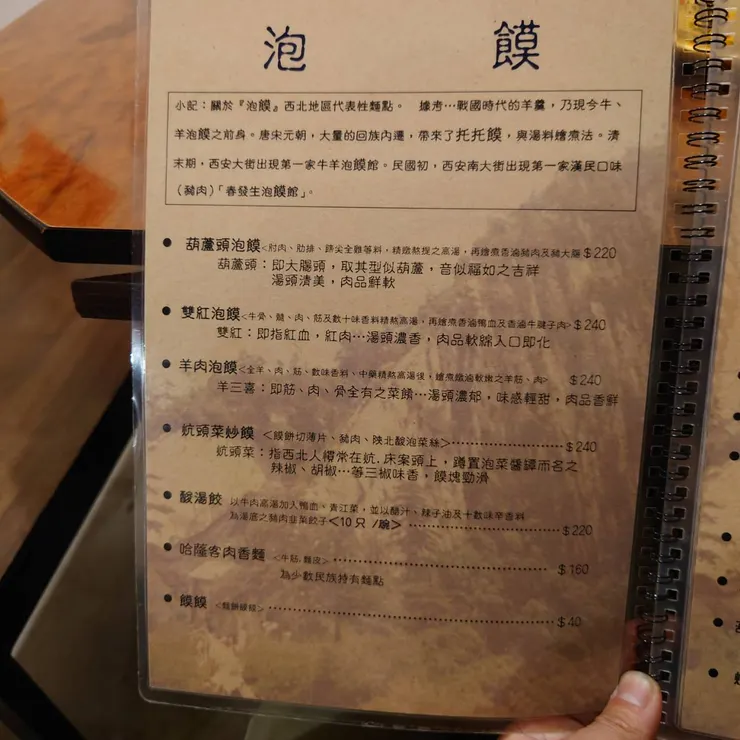 泡 饃
小記：關於『泡饃』西北地區代表性麵點。 據考…戰國時代的羊羹，乃現今牛、
羊泡饃之前身。唐宋元朝，大量的回族內遷，帶來了托托饃，與湯料燴煮法。清
末期，西安大街出現第一家牛羊泡饃館。民國初，西安南大街出現第一家漢民口味
（豬肉）「春發生泡饃館」。
● 葫蘆頭泡饃<肘肉、肋排、蹄尖全雞等料，精燉熬提之高湯，再燴煮香滷豬肉及豬大腸 $220
葫蘆頭：即大腸頭，取其型似葫蘆，音似福如之吉祥
湯頭清美，肉品鮮軟
● 雙紅泡饃<牛骨、髓、肉、筋及數十味香料精熬高湯，再燴煮香滷鴨血及香滷牛腱子肉> $240
雙紅：即指紅血，紅肉…湯頭濃香，肉品軟綿入口即化
● 羊肉泡饃<全羊、肉、筋、數味香料、中藥精熬高湯後，燴煮燉滷軟嫩之羊筋、肉> $240
羊三喜：即筋、肉、骨全有之菜餚…湯頭濃郁，味感輕甜，肉品香鮮
● 炕頭菜炒饃 <饃餅切薄片、豬肉、陝北酸泡菜絲>……………… $240
炕頭菜：指西北人禦常在炕.床案頭上，蹲置泡菜醬罈而名之
辣椒、胡椒…等三椒味香，饃塊勁滑
● 酸湯餃 以牛肉高湯加入鴨血、青江菜，並以醋汁、辣子油及十數味辛香料
為湯底之豬肉韭菜餃子<10 只 /碗> ……………… $220
● 哈薩客肉香麵 <牛筋.麵皮>……………… $160
為少數民族特有麵點
● 饃饃 ……………… $40